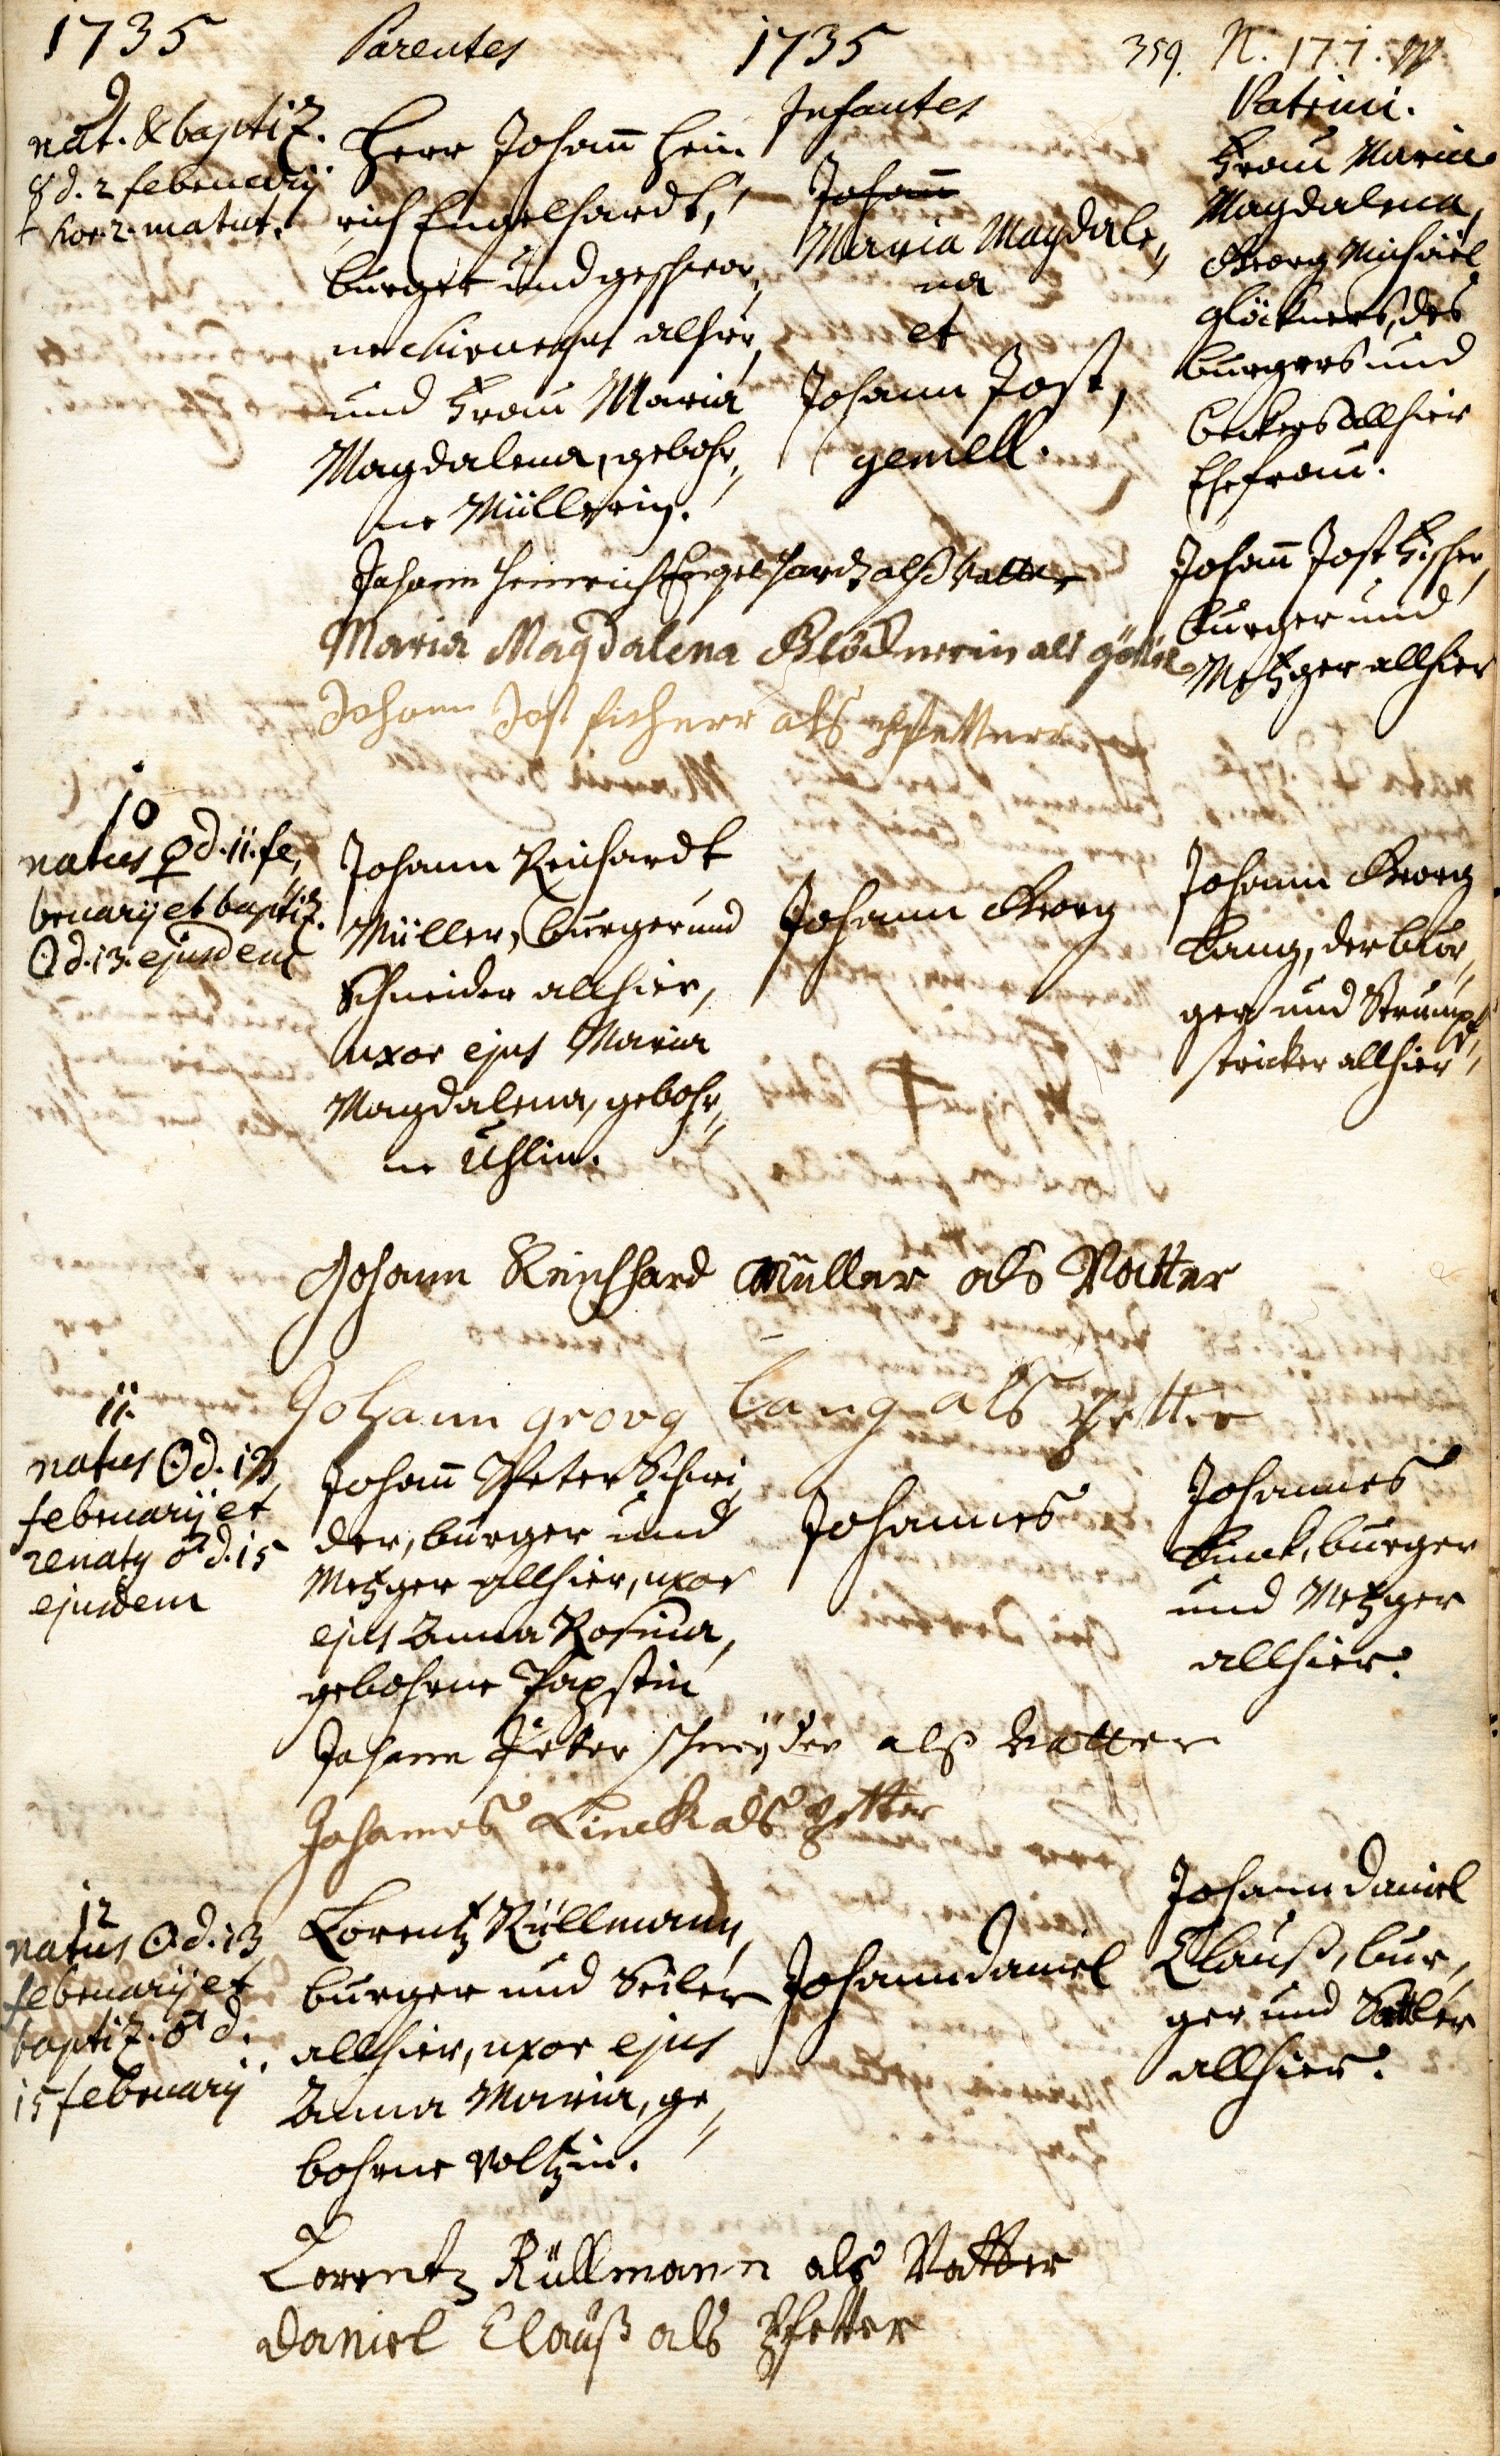 1735 Parentes 1735 359. N.
Infantes
Patrini.
9
nat. & baptiz.
☿ d. 2 februarij
hor. 2. matut.
Herr Johan̄ Hein
rich Engelhardt,
burger und geschwor,,
ne alhier,
und Frau Maria
Magdalena, gebohr,,
ne Müllerin.
Johan̄
Maria Magdale,,
na
et
Johann Jost,
gemell.
Frau Maria
Magdalena,
Georg Michäel
Glöckners, des
burgers und
beckers allhier
Ehefrau.
Johan̄ Jost Fischer,
burger und
Metzger allhier
Johann Heinrich Engelhardt alß Vatter
Maria Magdalena Glöcknerin als göttel
Johann Jost fischerr als pfetterr
10
natus ♀ d. 11. fe,,
bruarij et baptiz.
☉ d. 13. ejusdem
Johann Reichardt
Müller, burger und
Schneider allhier,
uxor ejus Maria
Magdalena, gebohr,,
ne Uhlin.
Johann Georg
Johann Georg
Lang, der bur,,
ger und Strumpf,,
stricker allhier
Johann Reichhard Müller als Vatter
Johann georg Lang als Petter
11.
natus ☉ d. 13
februarij et
renatus ♂ d. 15
ejusdem
Johan̄ Peter Schnei,,
der, burger und
Metzger allhier, uxor
ejus Anna Rosina,
gebohrne Papstin
Johannes
Johannes
Linck, burger
und Metzger
allhier.
Johann Peter schneÿder alß Vatter
Johannes Linck als Petter
12
natus ☉ d. 13
februarij et
baptiz. ♂ d.
15 februarij
Lorentz Rüllmann,
burger und Seiler
allhier, uxor ejus
Anna Maria, ge,,
bohrne Voltzin.
Johann Daniel
Johann Daniel
Clauß, bur,,
ger und Sattler
allhier.
Lorentz Rüllmann als Vatter
Daniel Clauß als Pfetter